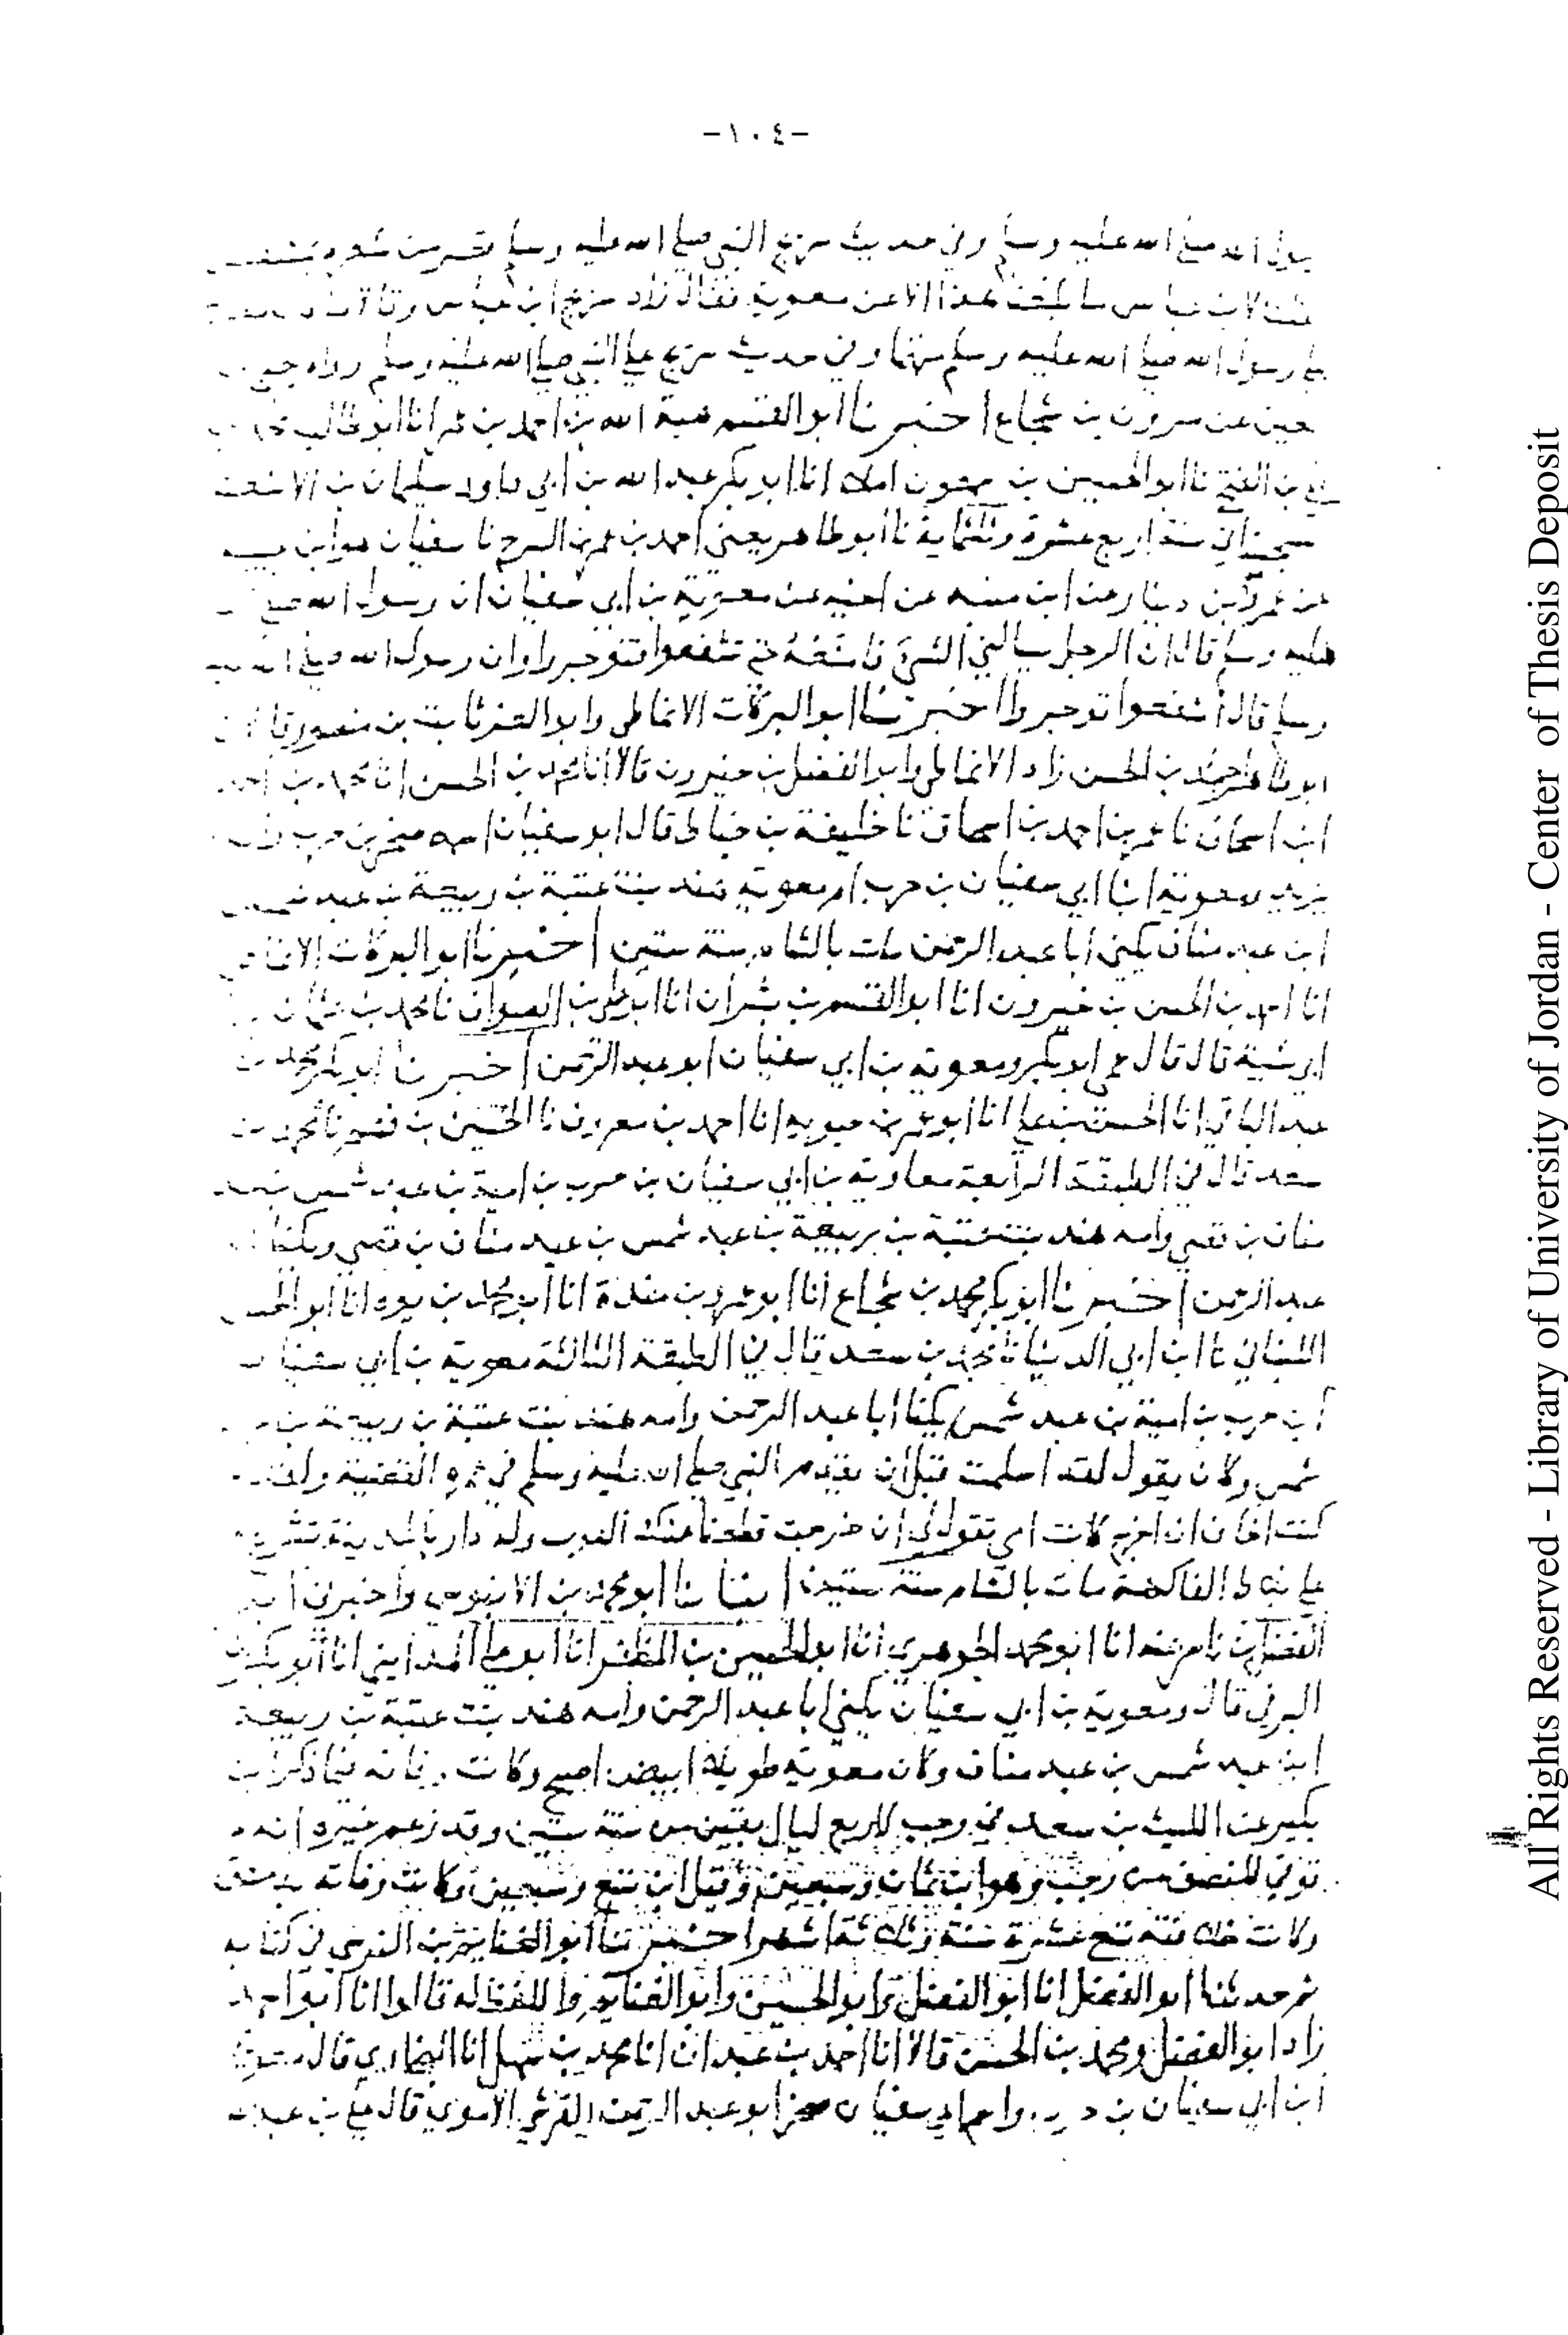 -١٠٤-
رسول الله صلى الله عليه وسلم وفي حديث سريج النبي صلى الله عليه وسلم قصر من شعره بمشقص
فقلت لابن عباس ما بلغنا هذا الا عن معوية فقال زاد سريج ابن عباس وقالا
على رسول الله صلى الله عليه وسلم متهما وفي حديث سريج على النبي صلى الله عليه وسلم رواه يحيى بن
معين عن مروان بن شجاع اخبرنا ابو القسم هبة الله بن احمد بن عمر انا ابو طالب محمد بن
علي بن الفتح نا ابو الحسين بن سمعون املاء انا ابو بكر عبد الله بن ابي داود سليمان بن الاشعث
السجستاني سنة اربع عشرة وثلثماية نا ابو طاهر يعني احمد بن عمرو بن السرح نا سفيان هو ابن عيينه
عن عمرو بن دينار عن ابن منبه عن اخيه عن معوية بن ابي سفيان ان رسول الله صلى الله
عليه وسلم قال ان الرجل يسالني الشيء فامنعه حتى تشفعوا فتوجروا وان رسول الله صلى الله عليه
وسلم قال اشفعوا توجروا اخبرنا ابو البركات الانماطي وابو العز ثابت بن منصور قالا انا
ابو طاهر احمد بن الحسن زاد الانماطي وابو الفضل بن خيرون قالا انا محمد بن الحسن انا محمد بن احمد
ابن اسحاق نا عمر بن احمد بن اسحاق نا خليفة بن خياط قال ابو سفيان اسمه صخر بن حرب
يزيد ومعوية ابنا ابي سفيان بن حرب ام معوية هند بنت عتبة بن ربيعة بن عبد شمس
ابن عبد مناف يكنى ابا عبد الرحمن مات بالشام سنة ستين اخبرنا ابو البركات الانماطي
انا احمد بن الحسن بن خيرون انا ابو القسم بن بشران انا ابو علي بن الصواف نا محمد بن عثمان
ابي شيبة قال قال عمي ابو بكر ومعوية بن ابي سفيان ابو عبد الرحمن اخبرنا ابو بكر محمد بن
عبد الباقي انا الحسن بن علي انا ابو عمر بن حيويه انا احمد بن معروف نا الحسين بن فهم نا محمد بن
سعد قال في الطبقة الرابعة معاوية بن ابي سفيان بن حرب بن امية بن عبد شمس بن عبد
مناف بن قصي وامه هند بنت عتبة بن ربيعة بن عبد شمس بن عبد مناف بن قصي ويكنا ابا
عبد الرحمن اخبرنا ابو بكر محمد بن شجاع انا ابو عمرو بن مندة انا ابو محمد بن يوه انا ابو الحسن
اللنباني نا ابن ابي الدنيا نا محمد بن سعد قال في الطبقة الثالثة معوية بن ابي سفيان
ابن حرب بن امية بن عبد شمس يكنا ابا عبد الرحمن وامه هند بنت عتبة بن ربيعة بن
شمس وكان يقول لقد اسلمت قبل ان يقدم النبي صلى الله عليه وسلم في عمرة القضية ولقد
كنت اخاف ان اخرج كانت امي تقول لي ان خرجت قطعنا عنك القوت وله دار بالمدينة تشرع
على بلاط الفاكهة مات بالشام سنة ستين انبانا ابو محمد بن الابنوسي واخبرني ابو
الفضل بن ناصر عنه انا ابو محمد الجوهري انا ابو الحسين بن المظفر انا ابو علي المدايني انا ابو بكر بن
البرقي قال ومعوية بن ابي سفيان يكنى ابا عبد الرحمن وامه هند بنت عتبة بن ربيعة
ابن عبد شمس بن عبد مناف وكان معوية طويلا ابيض اجلح وكانت وفاته فيما ذكر ابن
بكير عن الليث بن سعد في رجب لاربع ليال بقين من سنة ستين وقد زعم غيره انه
توفي للنصف من رجب وهو ابن ثمان وسبعين وقيل ابن تسع وسبعين وكانت وفاته بدمشق
وكانت خلافته تسع عشرة سنة وثلاثة اشهر اخبرنا ابو الغنايم بن النرسي في كتابه
ثم حدثنا ابو الفضل انا ابو الفضل وابو الحسين وابو الغنايم واللفظ له قالوا انا ابو احمد
زاد ابو الفضل ومحمد بن الحسن قالا انا احمد بن عبدان انا محمد بن سهل انا البخاري قال معوية
ابن ابي سفيان بن حرب واسم ابي سفيان صخر ابو عبد الرحمن القرشي الاموي قال علي بن عبد
All Rights Reserved - Library of University of Jordan - Center of Thesis Deposit